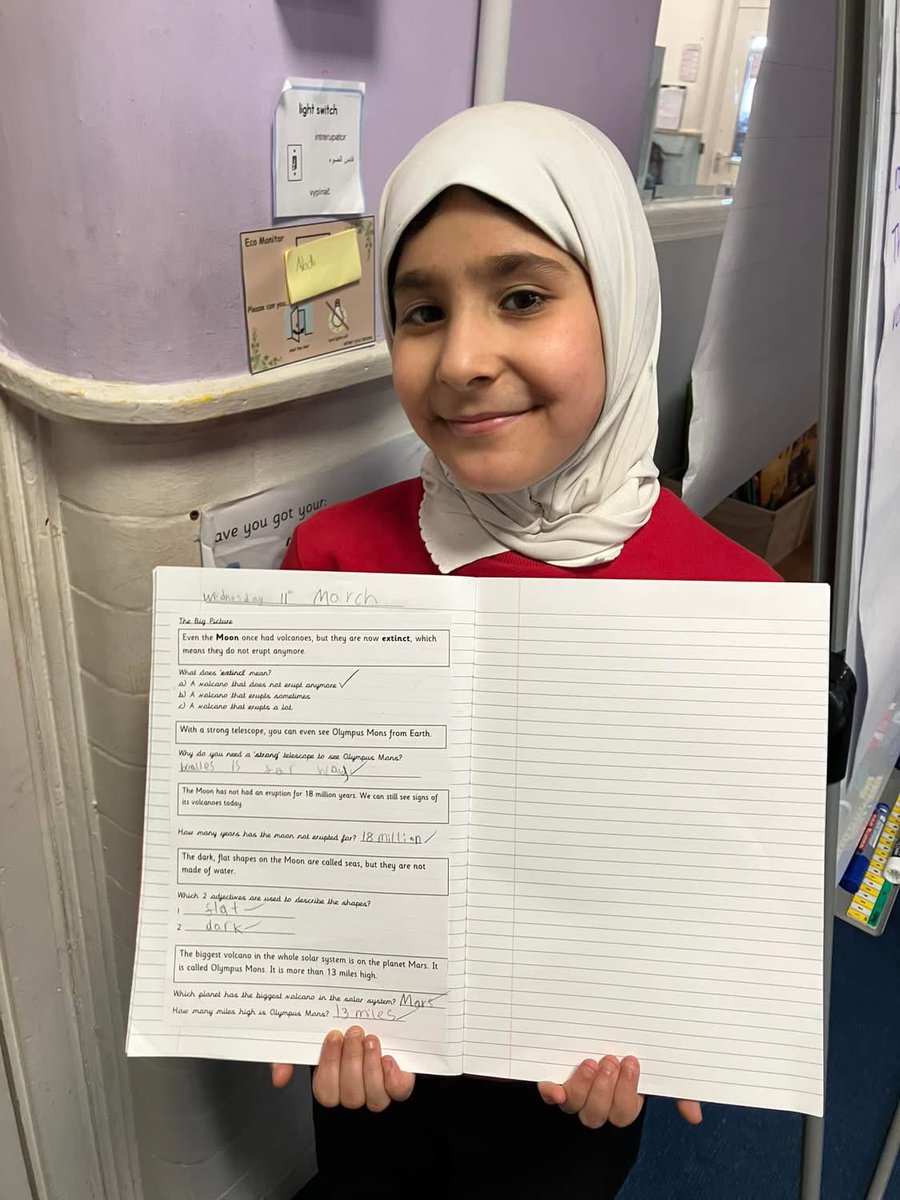 light switch
intrerupator
قابس الضوء
vypínač
Eco Monitor
Abdi
Please can you...
shut the door
ave you got your:
Wednesday 11th March
The Big Picture
Even the Moon once had volcanoes, but they are now extinct, which
means they do not erupt anymore.
What does 'extinct' mean?
a) A volcano that does not erupt anymore
b) A volcano that erupts sometimes
c) A volcano that erupts a lot
With a strong telescope, you can even see Olympus Mons from Earth.
Why do you need a 'strong' telescope to see Olympus Mons?
is far way
The Moon has not had an eruption for 18 million years. We can still see signs of
its volcanoes today.
How many years has the moon not erupted for? 18 million
The dark, flat shapes on the Moon are called seas, but they are not
made of water.
Which 2 adjectives are used to describe the shapes?
1 flat
2 dark
The biggest volcano in the whole solar system is on the planet Mars. It
is called Olympus Mons. It is more than 13 miles high.
Which planet has the biggest volcano in the solar system? Mars
How many miles high is Olympus Mons? 13 miles